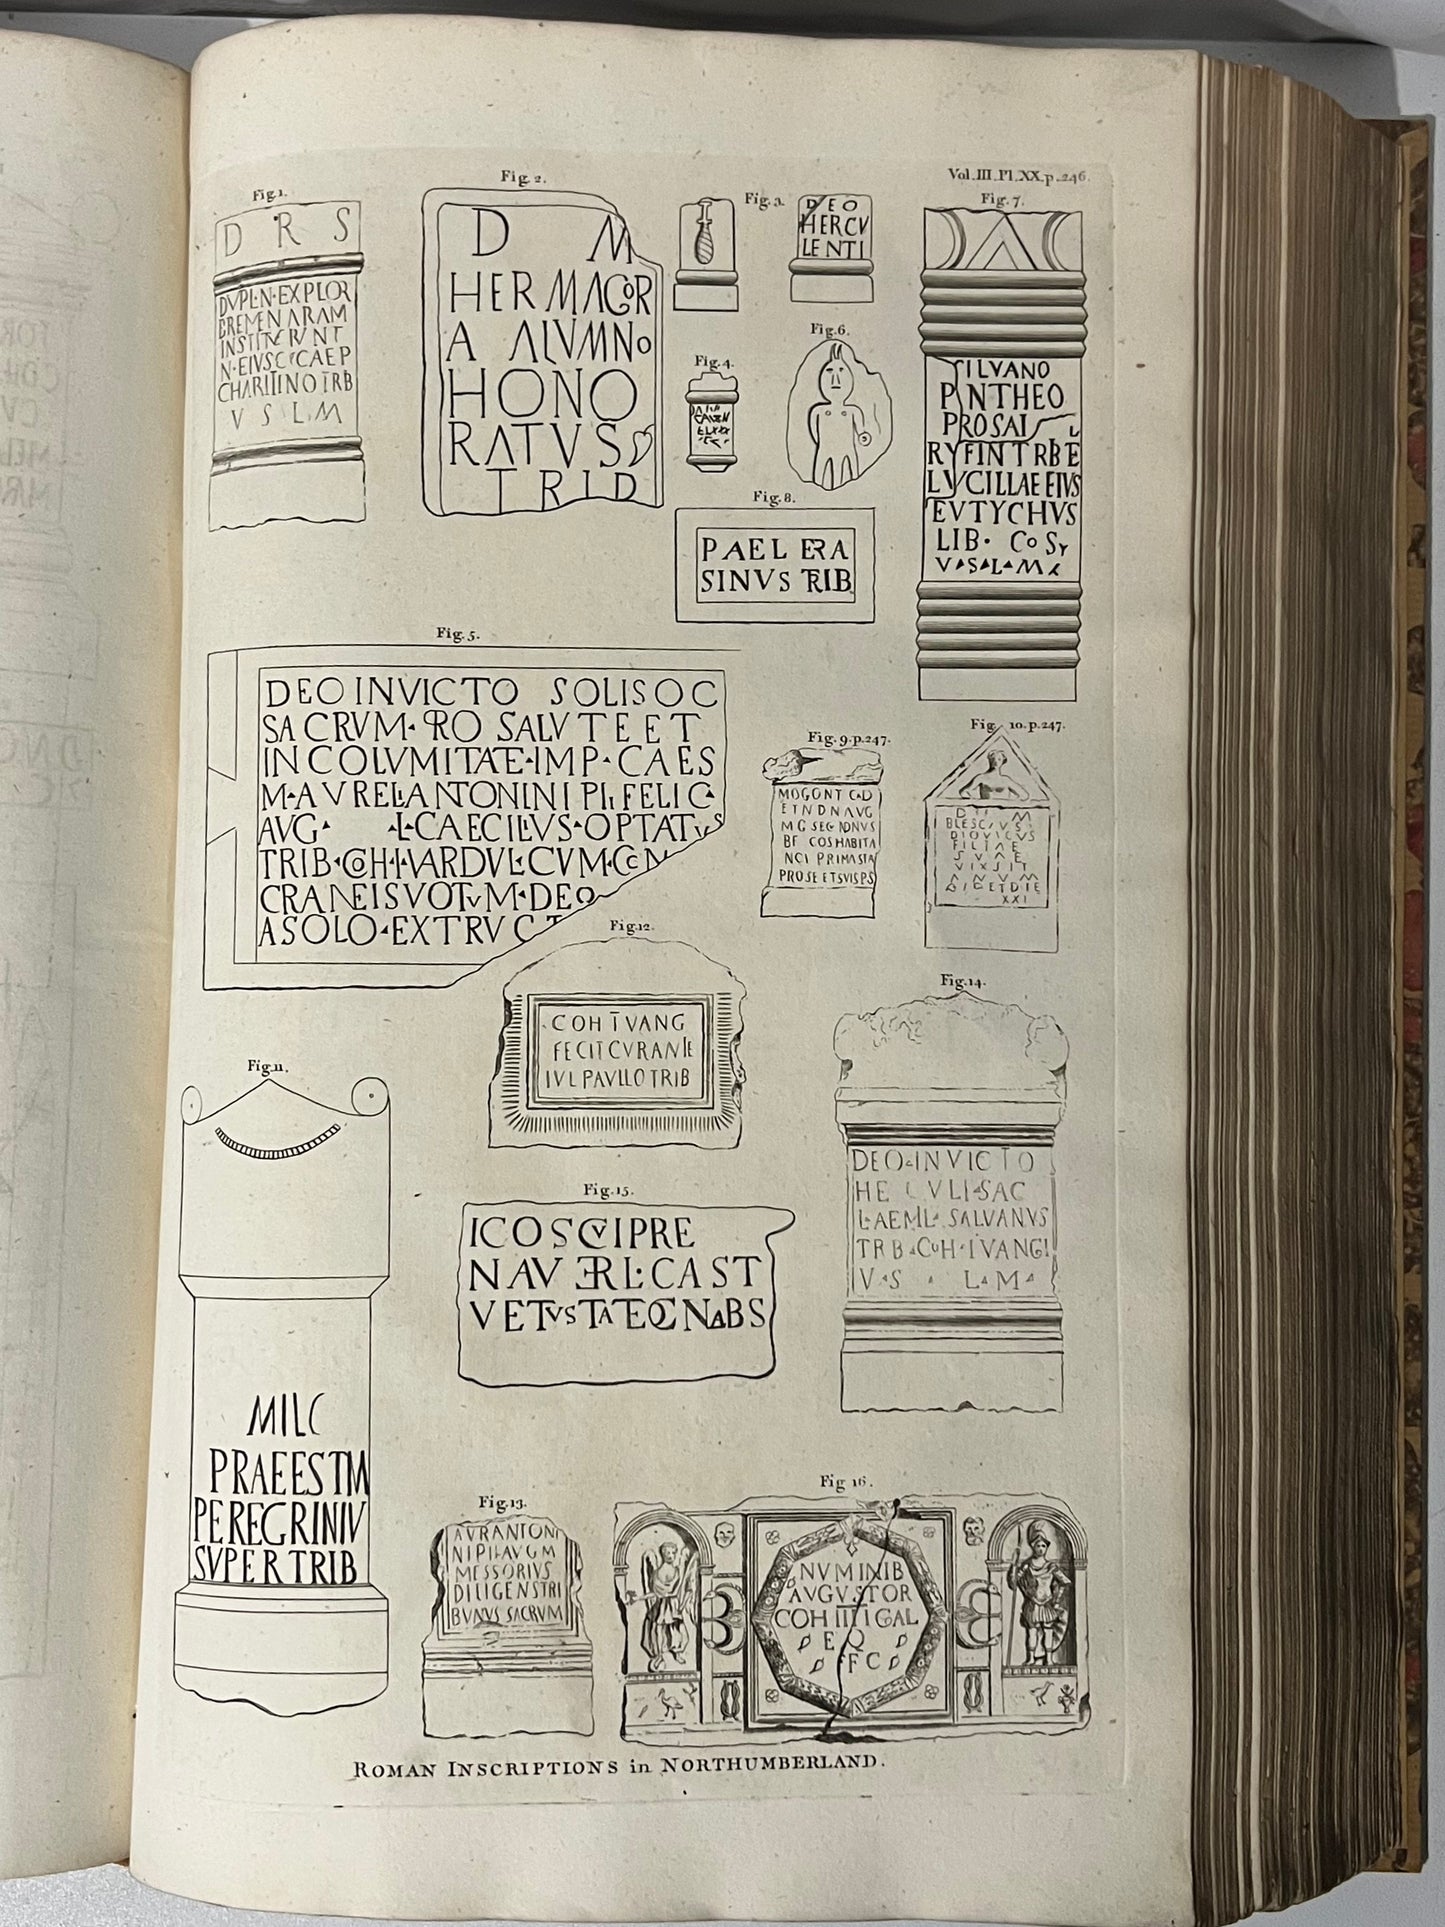 Vol. III. Pl. XX. p. 246.
Fig. 1.
D R S
DVPL·N·EXPLOR
BREMEN ARAM
INSTITVERVNT
N·EIVS C CAEP
CHARITINO TRB
V S L M
Fig. 2.
D M
HERMAGOR
A ALVMNO
HONO
RATVS
TRIB
Fig. 3.
DEO
HERCV
LENTI
Fig. 4.
Fig. 6.
Fig. 7.
SILVANO
PANTHEO
PRO SAL
RVFIN TRBE
LVCILLAE EIVS
EVTYCHVS
LIB· COS
V·S·L·M
Fig. 8.
PAEL ERA
SINVS TRIB
Fig. 5.
DEO INVICTO SOLI SOC
SACRVM· PRO SALVTE ET
INCOLVMITATE·IMP·CAES
M·AVRELI·ANTONINI PII FELIC·
AVG· ·L·CAECILIVS·OPTATVS
TRIB·COH·I·VARDVL·CVM·CON
CRANEIS VOTVM·DEO
A SOLO·EXTRVCT
Fig. 9. p. 247.
MOGONT CAD
ET N D N AVG
M G SECVNDINVS
BF COS HABITA
NCI PRIMASTA
PRO SE ET SVIS PS
Fig. 10. p. 247.
D M
BLESCIVS
DIOVICVS
FILIAE
SVAE
VIXSIT
ANVM
I C ET DIE
XXI
Fig. 12.
COH I VANG
FECIT CVRANTE
IVL PAVLLO TRIB
Fig. 14.
DEO·INVICTO
HE C VLI·SAC
L·AEML· SALVANVS
TRB·COH·I VANGI
V·S· L·M·
Fig. 11.
MILC
PRAEEST M
PEREGRINIV
SVPER TRIB
Fig. 15.
ICO SCVI PRE
NAVERL·CAST
VETVSTATE CNABS
Fig. 13.
AVR ANTONI
NI PII AVG M
MESSORIVS
DILIGENS TRI
BVNVS SACRVM
Fig. 16.
NVMINIB
AVGVSTOR
COH IIII GAL
EQ
FC
ROMAN INSCRIPTIONS in NORTHUMBERLAND.